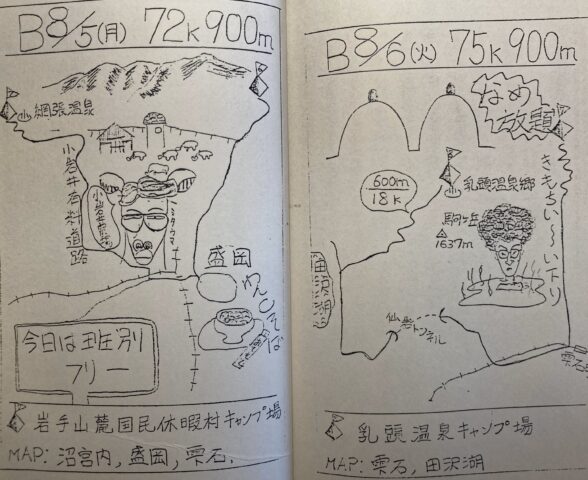 B 8/5(月) 72K900m
網張温泉
小岩井有料道路
小岩井農場
盛岡
わんこそば
今日は班別
フリー
岩手山麓国民休暇村キャンプ場
MAP: 沼宮内, 盛岡, 雫石.
B 8/6(火) 75K900m
なめ
放題
乳頭温泉郷
600m
18K
駒ヶ岳
1637m
きもちい〜い下り
田沢湖
仙岩トンネル
雫石
乳頭温泉キャンプ場
MAP: 雫石, 田沢湖